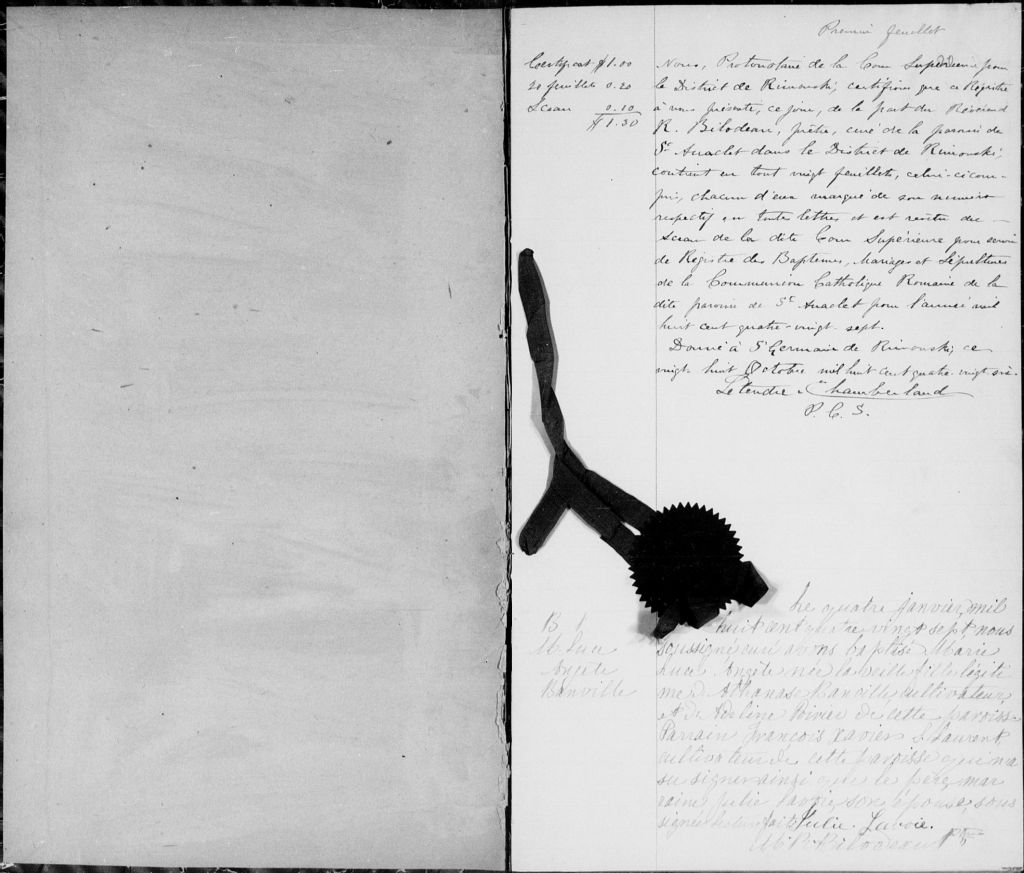 Premier feuillet
Certificat $1.00
20 feuillets 0.20
Sceau 0.10
$1.30
Nous, Protonotaire de la Cour Supérieure pour
le District de Rimouski, certifions que ce Registre
à nous présenté, ce jour, de la part du Révérend
R. Bilodeau, prêtre, curé de la paroisse de
St Anaclet dans le District de Rimouski,
contient en tout vingt feuillets, celui-ci com-
pris, chacun d'eux marqué de son numéro
respectif en toutes lettres et est revêtu du
sceau de la dite Cour Supérieure pour servir
de Registre des Baptêmes, Mariages et Sépultures
de la Communion Catholique Romaine de la
dite paroisse de St Anaclet pour l'année mil
huit cent quatre-vingt sept.
Donné à St Germain de Rimouski, ce
vingt-huit Octobre mil huit cent quatre-vingt six.
Letendre & Chamberland
P. C. S.
B 1
M. Luce
Angèle
Banville
Le quatre janvier, mil
huit cent quatre vingt sept, nous
soussigné curé avons baptisé Marie
Luce Angèle née la veille fille légiti
me d'Athanase Banville cultivateur,
et de Adeline Poirier de cette paroisse.
Parrain François Xavier St Laurent,
cultivateur de cette paroisse qui n'a
su signer ainsi que le père, mar
raine Julie Lavoie son épouse, sous
signée lecture faite Julie Lavoie.
M R Bilodeau Ptre